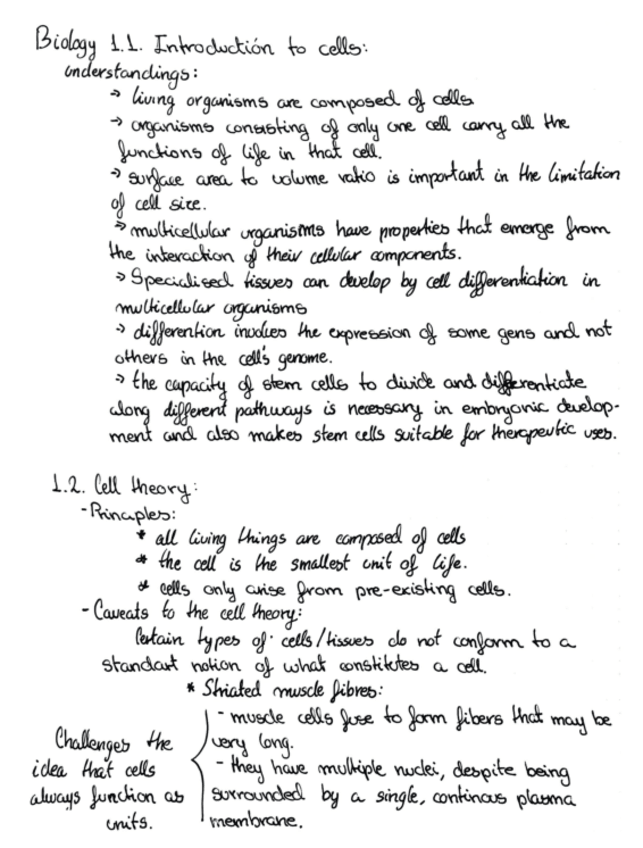 Biology 1.1. Introductión to cells:
understandings:
→ living organisms are composed of cells
→ organisms consisting of only one cell carry all the
functions of life in that cell.
→ surface area to volume ratio is important in the limitation
of cell size.
→ multicellular organisms have properties that emerge from
the interaction of their cellular components.
→ Specialised tissues can develop by cell differentiation in
multicellular organisms
→ differention involves the expression of some gens and not
others in the cell's genome.
→ the capacity of stem cells to divide and differentiate
along different pathways is necessary in embryonic develop-
ment and also makes stem cells suitable for therapeutic uses.
1.2. Cell theory:
- Principles:
* all living things are composed of cells
* the cell is the smallest unit of life.
* cells only arise from pre-existing cells.
- Caveats to the cell theory:
Certain types of cells/tissues do not conform to a
standart notion of what constitutes a cell.
* Striated muscle fibres:
- muscle cells fuse to form fibers that may be
very long.
- they have multiple nuclei, despite being
surrounded by a single, continous plasma
membrane.
Challenges the
idea that cells
always function as
units.